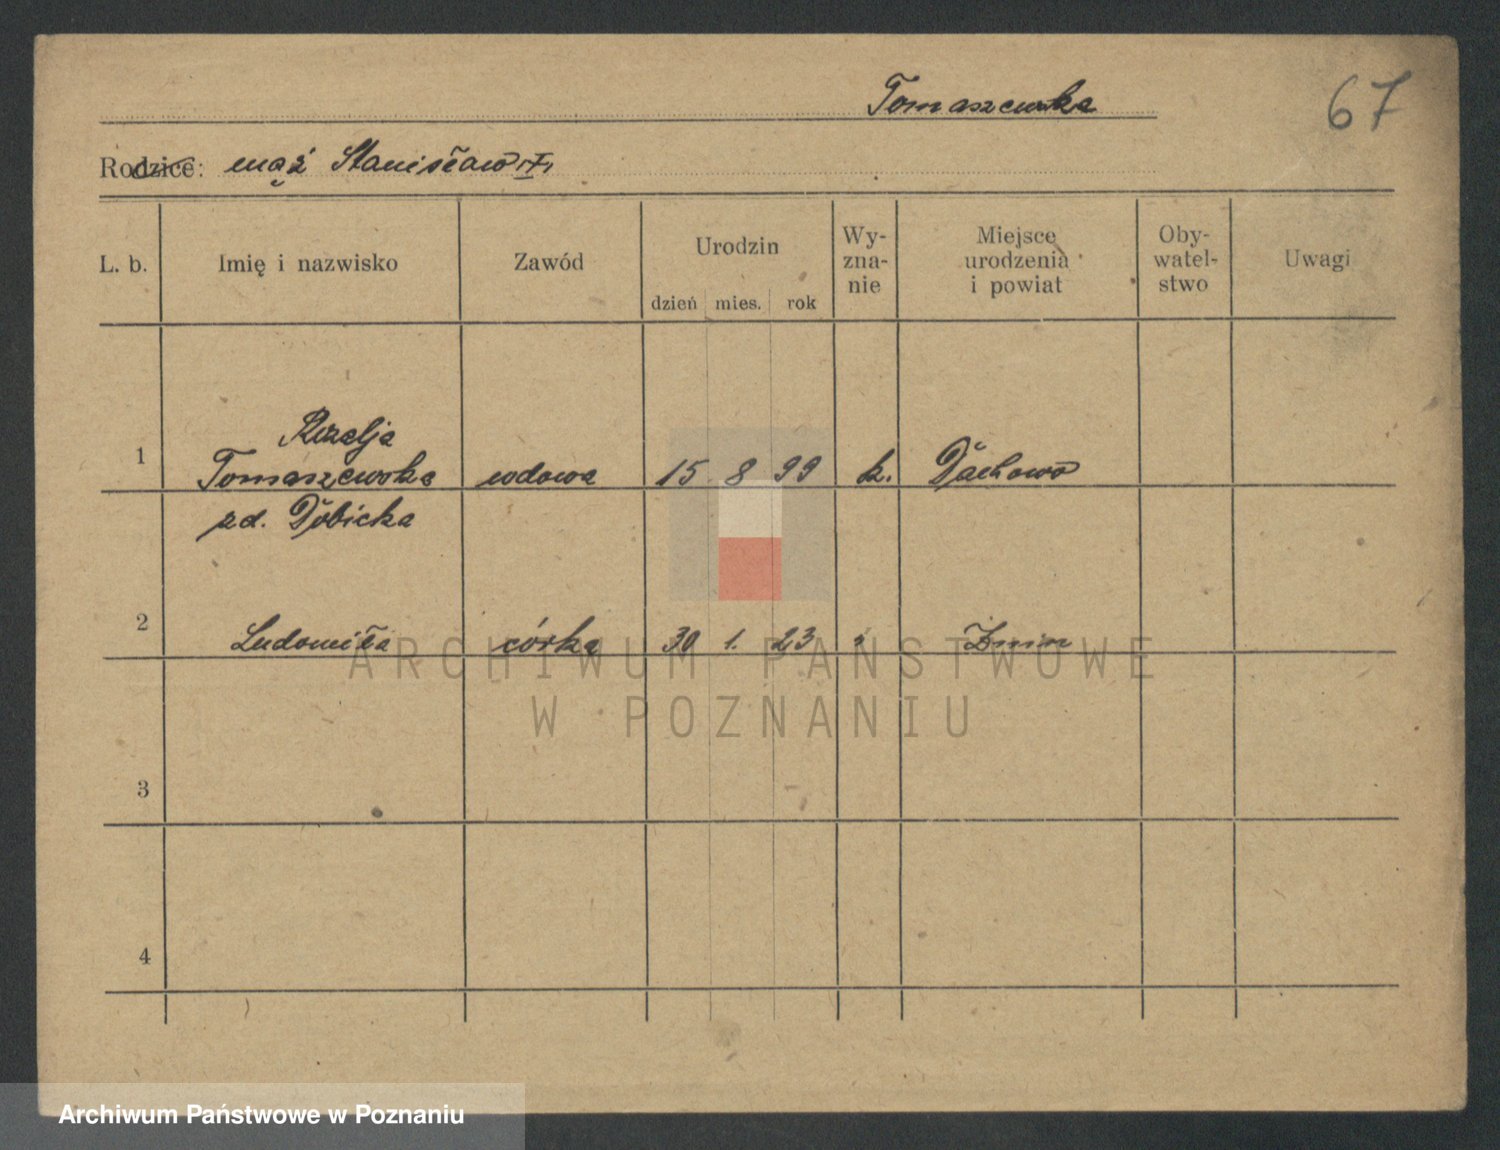 Tomaszewska
67
Rodzice: mąż Stanisław IX,
L. b. Imię i nazwisko Zawód Urodzin dzień mies. rok Wy-
zna-
nie Miejsce
urodzenia
i powiat Oby-
watel-
stwo Uwagi
Rozalja
1 Tomaszewska wdowa 15 8 99 k. Dachowo
zd. Dybicka
2 Ludomiła córka 30 1. 23 Żnin
3
4
ARCHIWUM PAŃSTWOWE
W POZNANIU
Archiwum Państwowe w Poznaniu